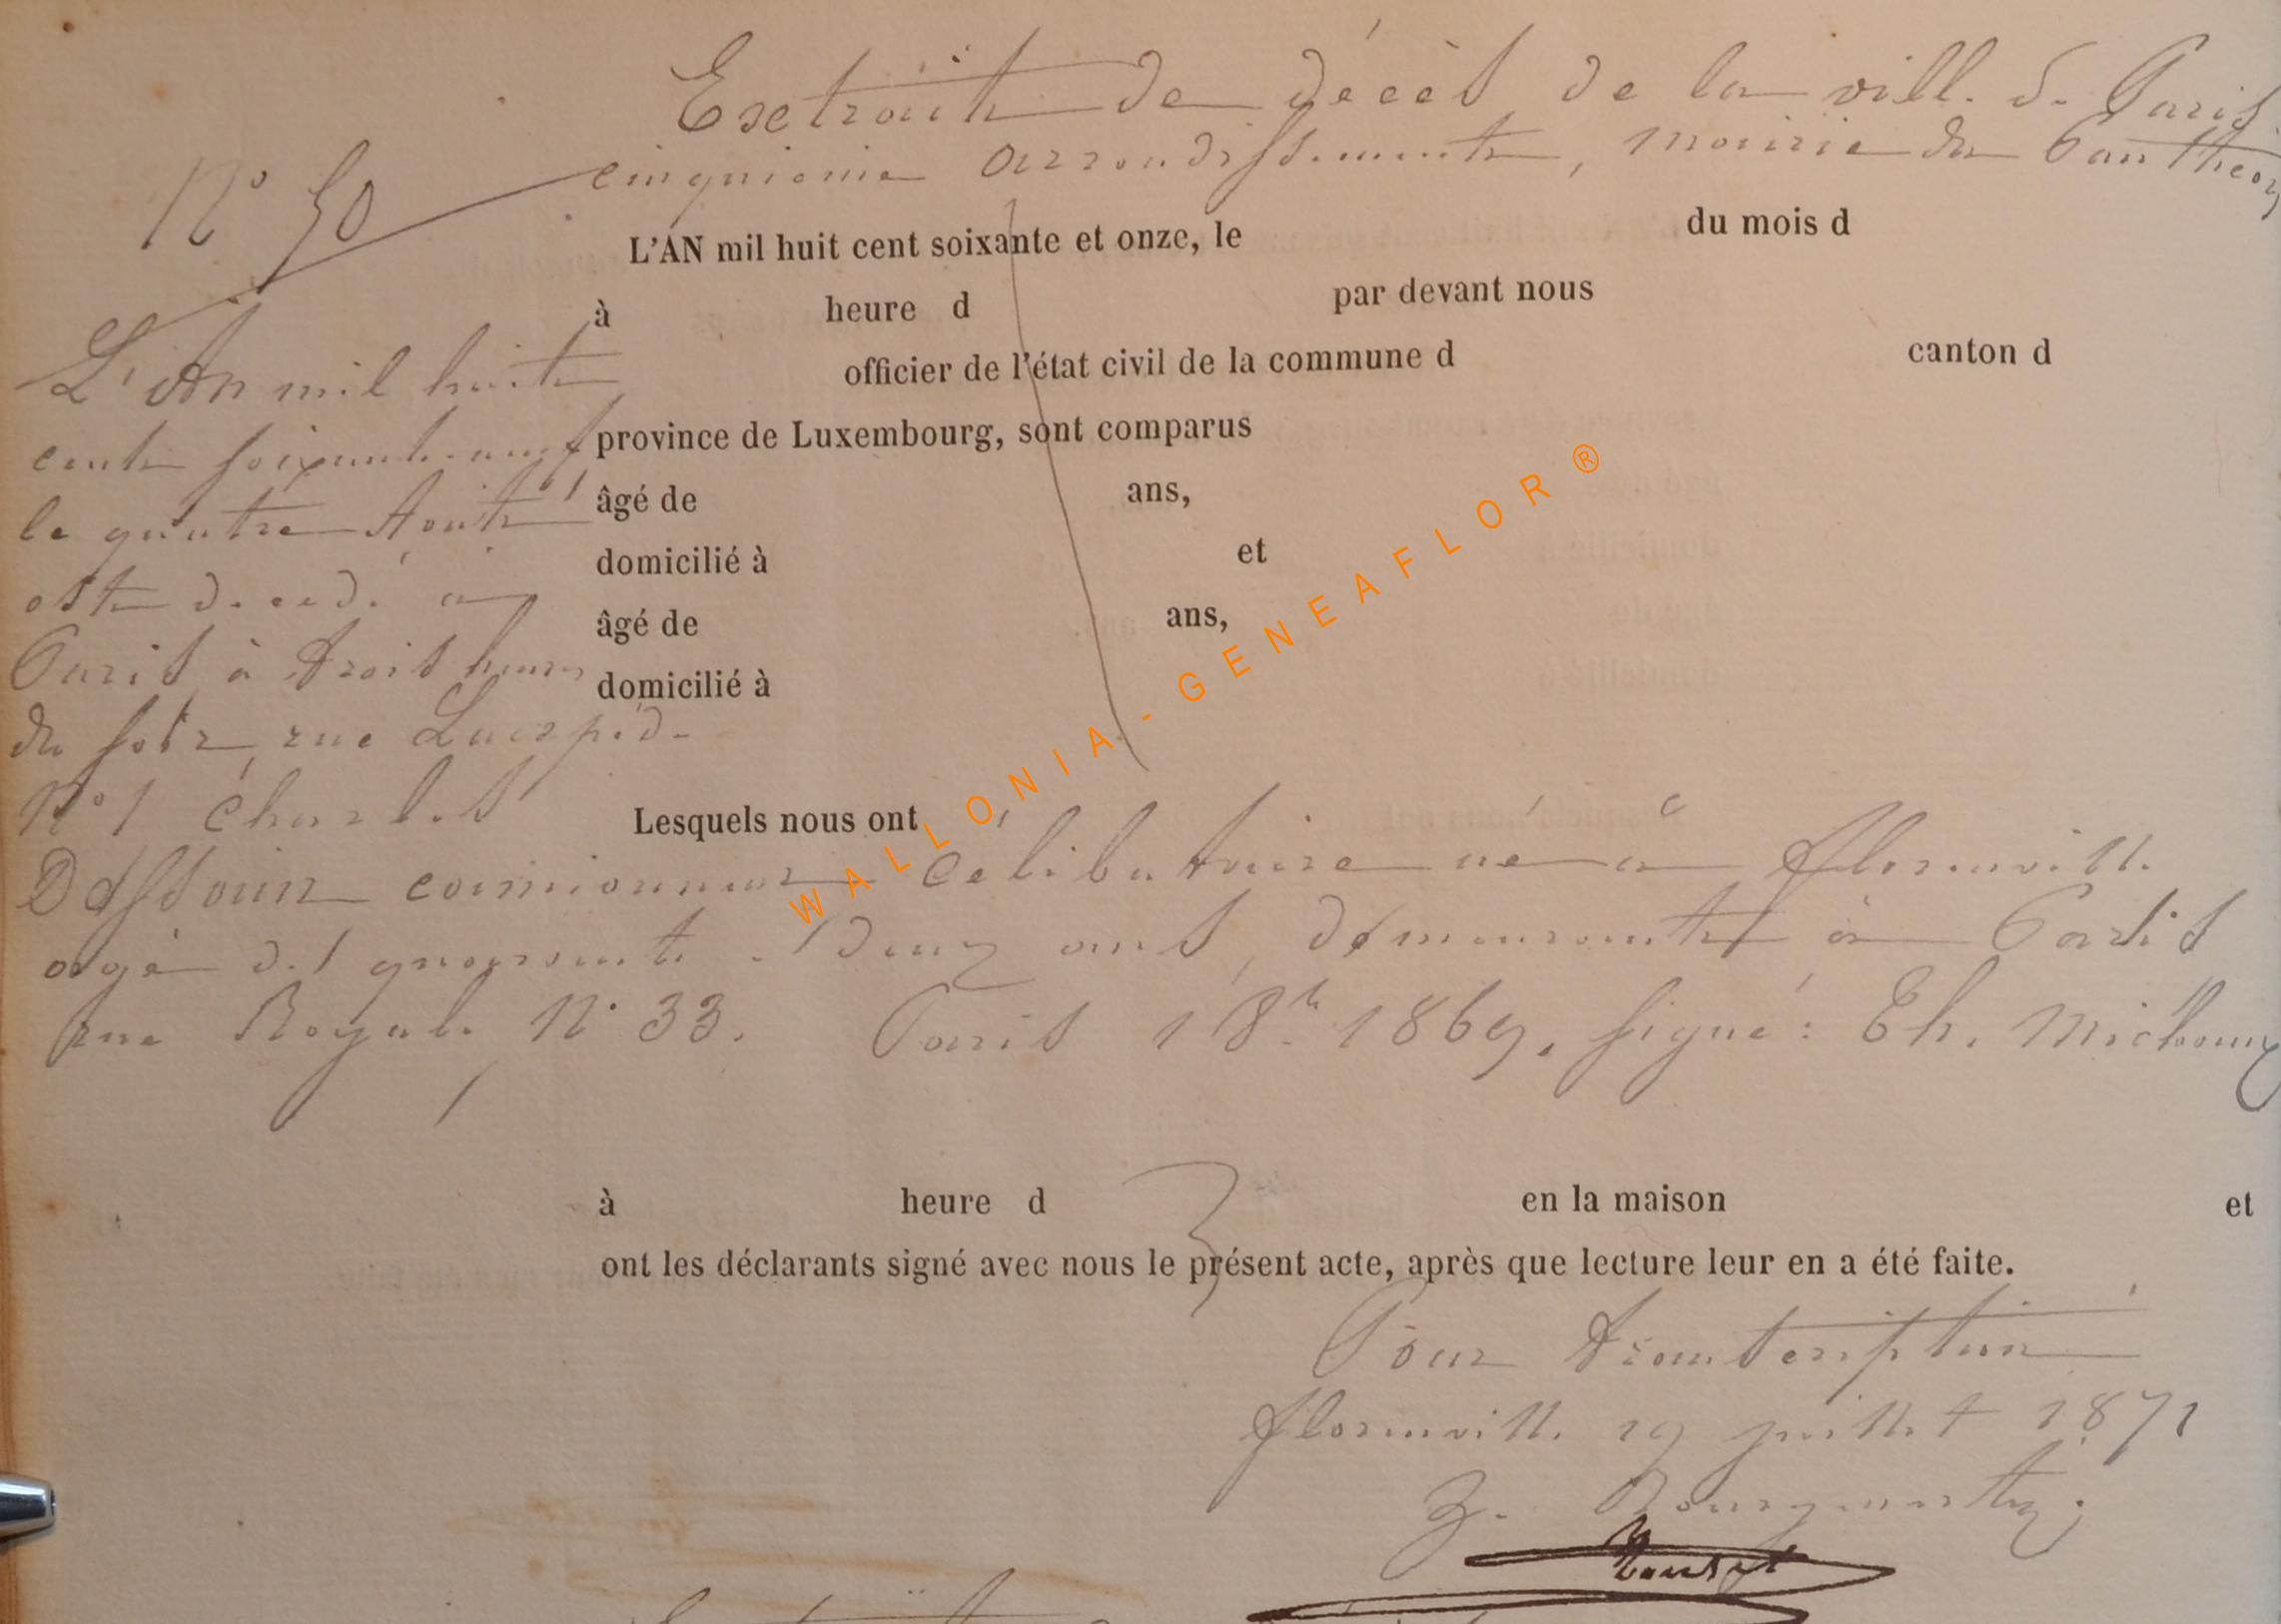 Extrait de décès de la ville de Paris
cinquième arrondissement, mairie du Panthéon
N° 50
L'AN mil huit cent soixante et onze, le du mois d
à heure d par devant nous
officier de l'état civil de la commune d canton d
province de Luxembourg, sont comparus
âgé de ans,
domicilié à et
âgé de ans,
domicilié à
L'An mil huit
cent soixante-neuf
le quatre Août
est décédé à
Paris à trois heures
du soir, rue Lacépède
N° 1 Charles
Lesquels nous ont
Dassouin célibataire né à Florenville
agé de quarante deux ans, demeurant à Paris
rue Royale N° 33. Paris 1 8bre 1869, signé: Th. Michaux
à heure d en la maison et
ont les déclarants signé avec nous le présent acte, après que lecture leur en a été faite.
Pour transcription
Florenville 29 juillet 1871
Bourgmestre
WALLONIA - GENEAFLOR ®